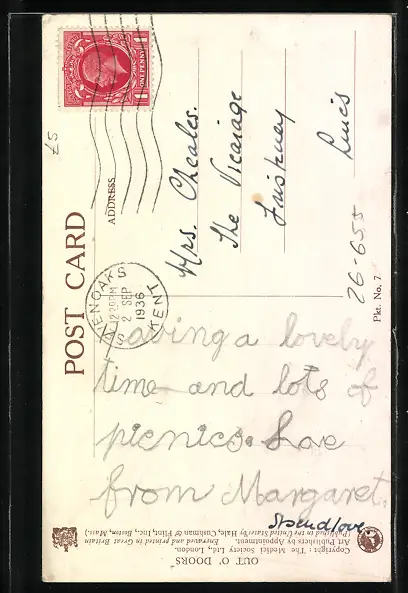 POST CARD
ADDRESS
ONE PENNY
SEVENOAKS
12 20 PM
2 SEP
1936
KENT
£5
Mrs. Cheales.
The Vicarage
Friskney
Lincs
26-655
Pkt. No. 7.
Having a lovely
time and lots of
picnics. Love
from Margaret.
I send love
OUT O' DOORS
Copyright : The Medici Society, Ltd., London.
Art Publishers by Appointment. Engraved and printed in Great Britain
(Published in the United States by Hale, Cushman & Flint, Inc., Boston, Mass.)